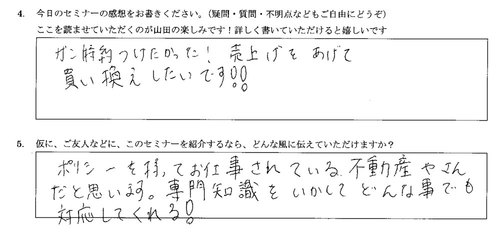 4. 今日のセミナーの感想をお書きください。（疑問・質問・不明点などもご自由にどうぞ）
ここを読ませていただくのが山田の楽しみです！詳しく書いていただけると嬉しいです
ガン特約つけたかった！売上げをあげて
買い換えしたいです!!
5. 仮に、ご友人などに、このセミナーを紹介するなら、どんな風に伝えていただけますか？
ポリシーを持ってお仕事されている不動産やさん
だと思います。専門知識をいかしてどんな事でも
対応してくれる!